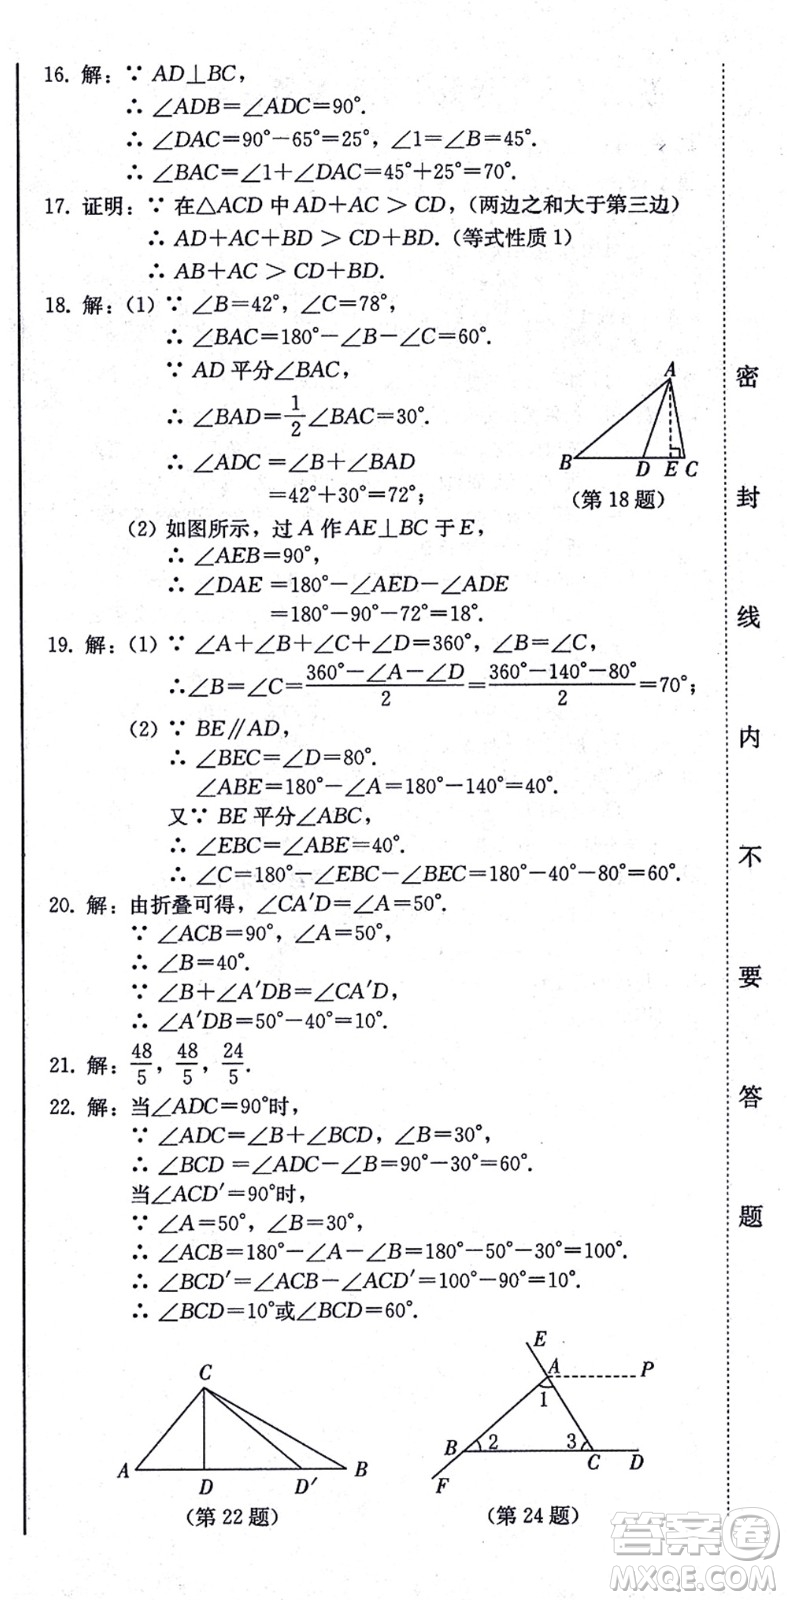 16. 解：∵ AD⊥BC，
∴ ∠ADB=∠ADC=90°.
∴ ∠DAC=90°-65°=25°，∠1=∠B=45°.
∴ ∠BAC=∠1+∠DAC=45°+25°=70°.
17. 证明：∵ 在△ACD 中 AD+AC > CD，（两边之和大于第三边）
∴ AD+AC+BD > CD+BD.（等式性质 1）
∴ AB+AC > CD+BD.
18. 解：(1) ∵ ∠B=42°，∠C=78°，
∴ ∠BAC=180°-∠B-∠C=60°.
∵ AD 平分∠BAC，
∴ ∠BAD=1/2∠BAC=30°.
∴ ∠ADC =∠B+∠BAD
=42°+30°=72°；
(2) 如图所示，过 A 作 AE⊥BC 于 E，
∴ ∠AEB=90°，
∴ ∠DAE =180°-∠AED-∠ADE
=180°-90°-72°=18°.
A
B D E C
（第 18 题）
19. 解：(1) ∵ ∠A+∠B+∠C+∠D=360°，∠B=∠C，
∴∠B=∠C=(360°-∠A-∠D)/2=(360°-140°-80°)/2=70°；
(2) ∵ BE∥AD，
∴ ∠BEC=∠D=80°.
∠ABE=180°-∠A=180°-140°=40°.
又∵ BE 平分∠ABC，
∴ ∠EBC=∠ABE=40°.
∴ ∠C=180°-∠EBC-∠BEC=180°-40°-80°=60°.
20. 解：由折叠可得，∠CA′D=∠A=50°.
∵ ∠ACB=90°，∠A=50°，
∴ ∠B=40°.
∵ ∠B+∠A′DB=∠CA′D，
∴ ∠A′DB=50°-40°=10°.
21. 解：48/5，48/5，24/5.
22. 解：当∠ADC=90°时，
∵ ∠ADC=∠B+∠BCD，∠B=30°，
∴ ∠BCD =∠ADC-∠B=90°-30°=60°.
当∠ACD′=90°时，
∵ ∠A=50°，∠B=30°，
∴ ∠ACB=180°-∠A-∠B=180°-50°-30°=100°.
∴ ∠BCD′=∠ACB-∠ACD′=100°-90°=10°.
∴ ∠BCD=10°或∠BCD=60°.
C
A D D′ B
（第 22 题）
E
A P
1
B 2 3 C D
F
（第 24 题）
密
封
线
内
不
要
答
题
答案卷
MXQE.COM